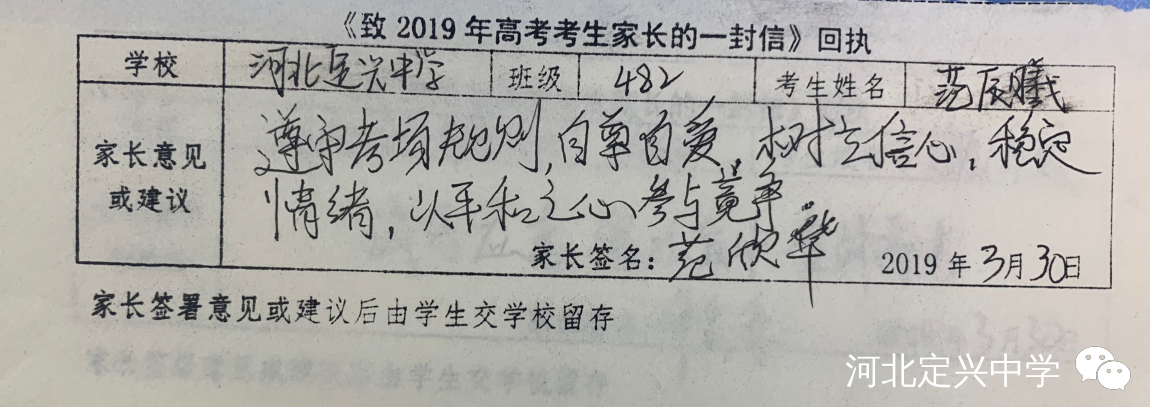 《致2019年高考考生家长的一封信》回执
学校 河北定兴中学 班级 482 考生姓名 范辰曦
家长意见或建议 遵守考场规则,自尊自爱,树立信心,稳定
情绪,以平和之心参与竟争
家长签名:范欣华 2019年3月30日
家长签署意见或建议后由学生交学校留存
河北定兴中学